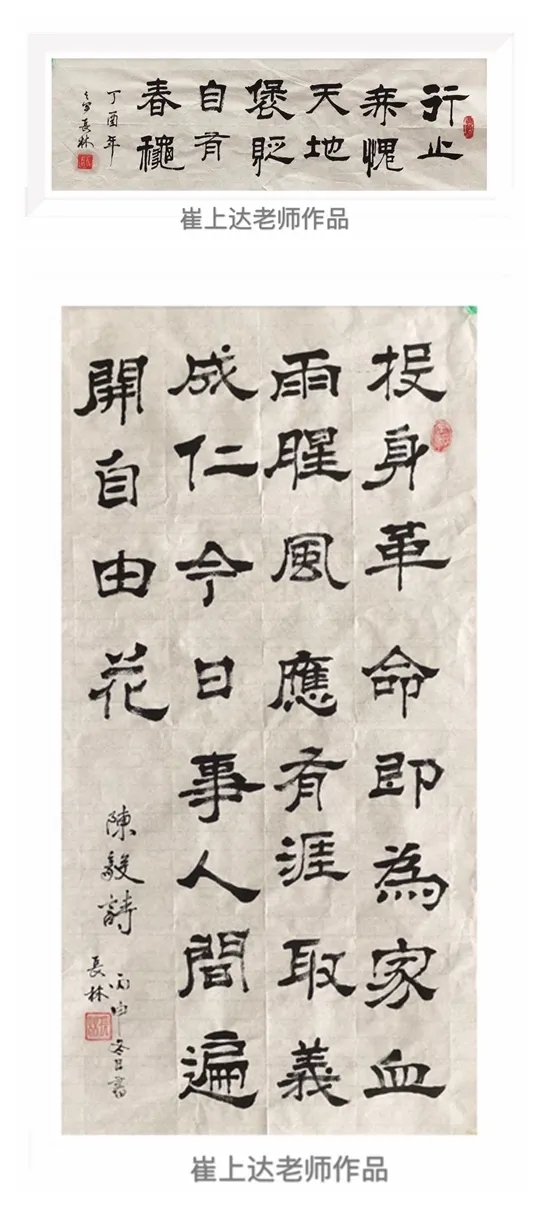 行止
無愧
天地
褒貶
自有
春龝
丁酉年
長林
崔上达老师作品
投身革命即為家血
雨腥風應有涯取義
成仁今日事人間遍
開自由花
陳毅詩
丙申冬日書
長林
崔上达老师作品